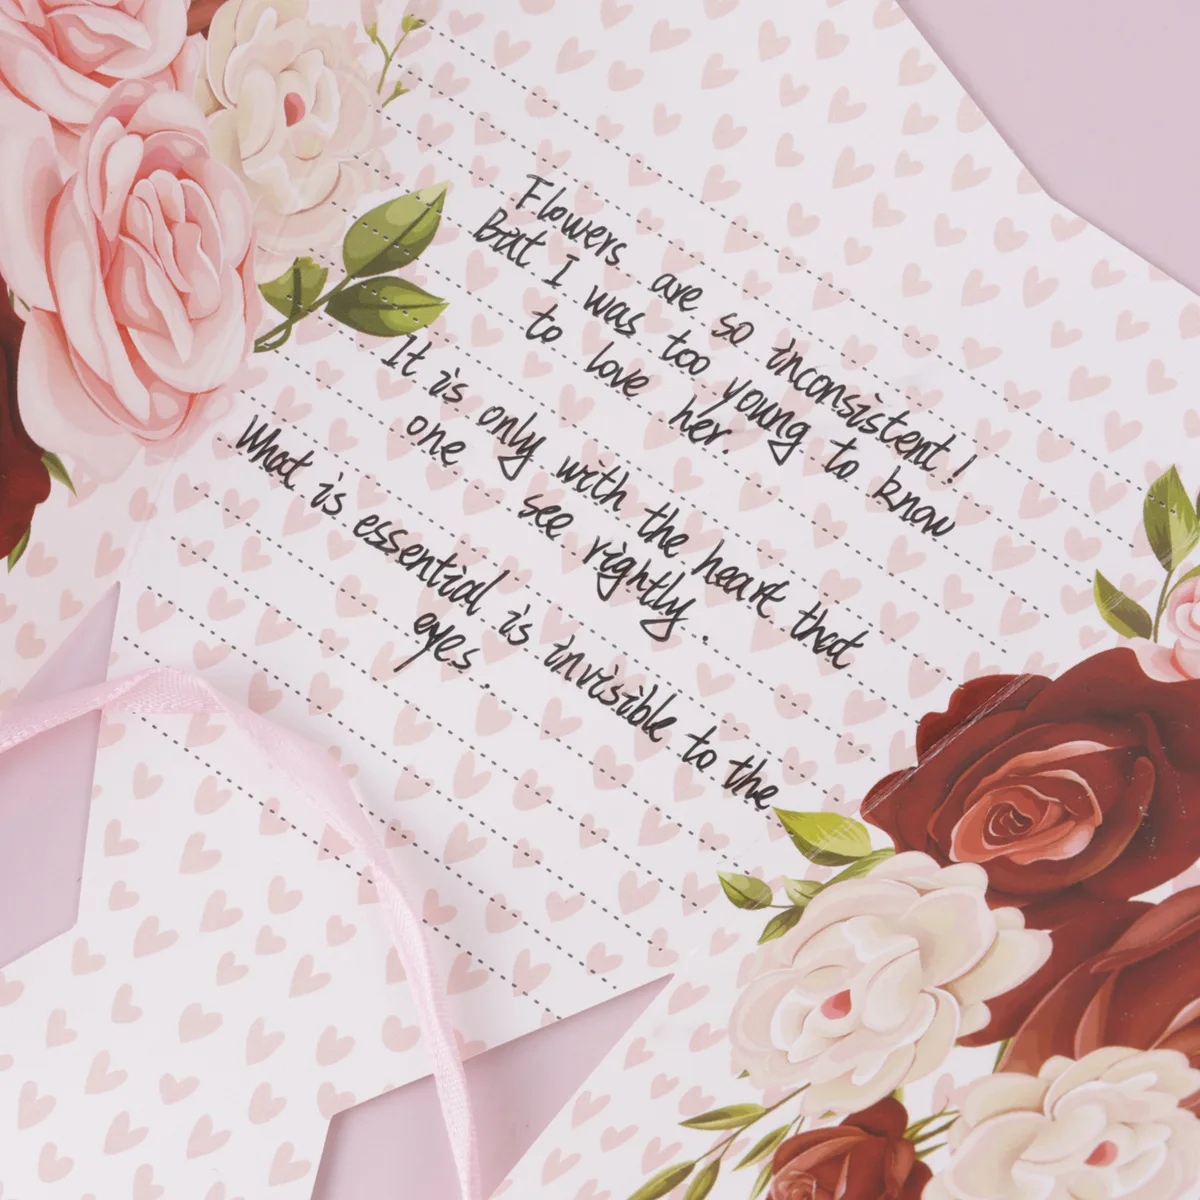 Flowers are so inconsistent!
But I was too young to know
to love her.
It is only with the heart that
one see rightly.
What is essential is invisible to the
eyes.